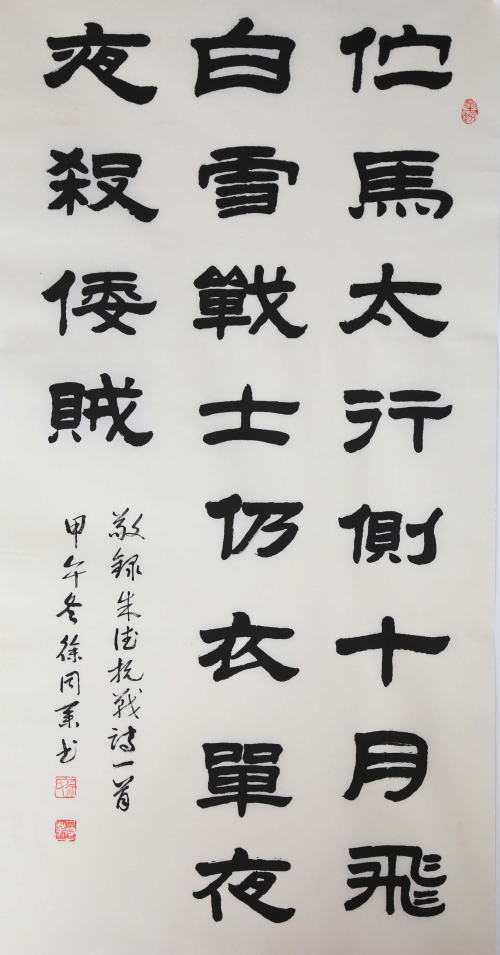 伫馬太行側十月飛
白雪戰士仍衣單夜
夜殺倭賊
敬録朱德抗戰詩一首
甲午冬徐同業书